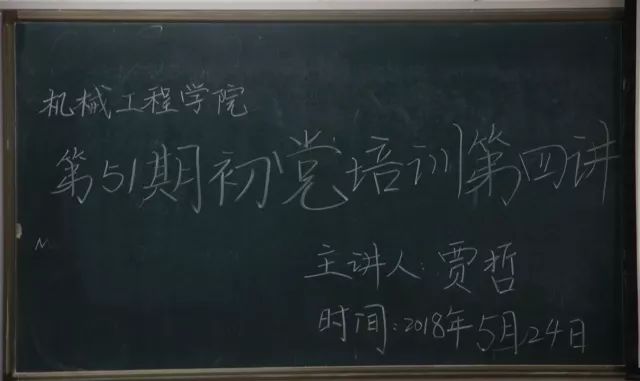 机械工程学院
第51期初党培训第四讲
主讲人:贾哲
时间:2018年5月24日